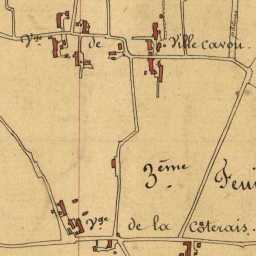 Vge de Ville Cavou
3ème Feui
Vge de la Costerais.